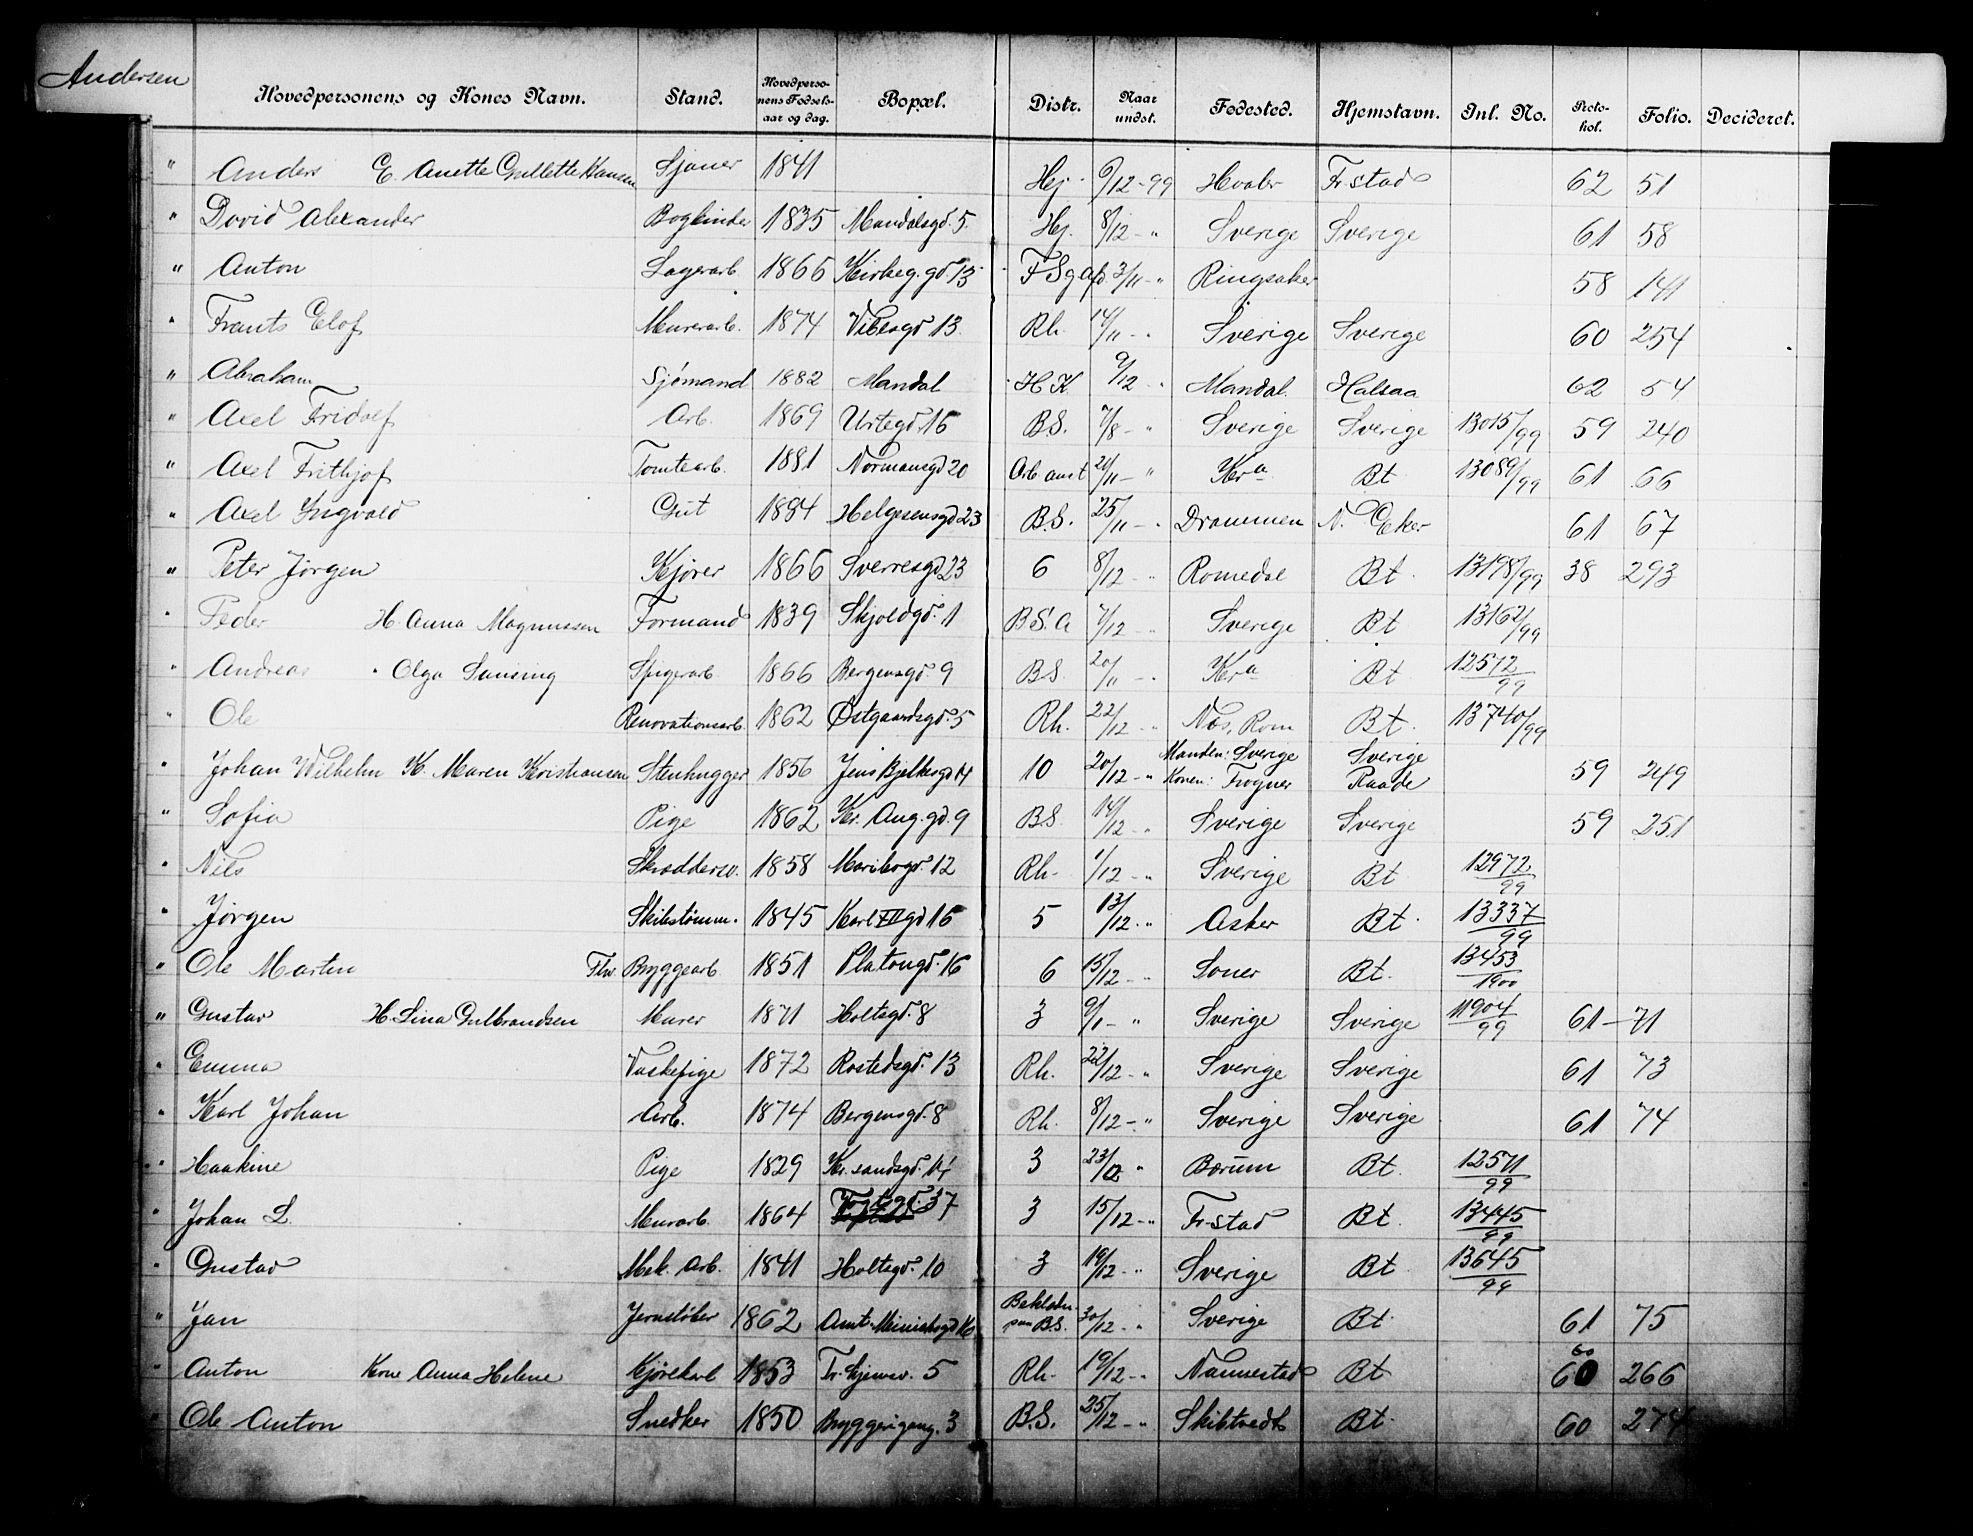 Andersen
Hovedpersonens og Kones Navn. Stand. Hovedpersonens Fødselsaar og dag. Bopæl. Distr. Naar undst. Fødested. Hjemstavn. Inl. No. Protokol. Folio. Decideret.
" Anders E. Anette Gullette Hansen Sjauer 1841 Hej. 9/12-99 Hvaler Fr-stad 62 51
" David Alexander Bogbinder 1835 Mandalsgd. 5. Hj. 8/12-" Sverige Sverige 61 58
" Anton Lagerarb. 1865 Kirkeg. gd. 13 F Sg afd. 3/11-" Ringsaker 58 141
" Frants Elof Murerarb. 1874 Vibesgd 13. Rh. 14/11-" Sverige Sverige 60 254
" Abraham Sjømand 1882 Mandal H K. 9/12-" Mandal. Halsaa 62 54
" Axel Fridolf Arb. 1869 Urtegd. 16 B.S. 7/8-" Sverige Sverige 13015/99 59 240
" Axel Frithjof Tomtearb. 1881 Normansgd 20 Arb anst 21/11-" Kra Bt 13089/99 61 66
" Axel Ingvald Gut 1884 Helgesensgd 23 B.S. 25/11-" Drammen N. Eker 61 67
" Peter Jørgen Kjører 1866 Sverresgd 23 6 8/12-" Romedal Bt. 13198/99 38 293
" Peder H. Anna Magnussen Formand 1839 Skjoldgd. 1 B S. A 7/12-" Sverige Bt 13162/99
" Andreas " Olga Lansing Spigerarb. 1866 Bergensgd. 9 B S. 20/11-" Kra Bt 12572/99
" Ole Renovationsarb. 1862 Østgaardsgd. 5 Rh. 22/12-" Næs, Rom Bt. 13740/99
" Johan Wilhelm K. Maren Kristiansen Stenhugger 1856 Jens Bjelkesgd 14 10 20/12-" Manden: Sverige Sverige 59 249
Konen: Frogner Raade
" Sofia Pige 1862 Kr. Aug. gd. 9 B.S. 14/12-" Sverige Sverige 59 251
" Nils Skræddersv. 1858 Maribogd. 12 Rh. 1/12-" Sverige Bt 12972/99
" Jørgen Skibstømm. 1845 Karl XII gd 16 5 13/12-" Asker Bt. 13337/99
" Ole Martin Flv. Bryggearb. 1851 Platougd. 16 6 15/12-" Soner Bt. 13453/1900
" Gustav H. Lina Gulbrandsen Murer 1871 Holtegd. 8 3 9/1-" Sverige Sverige 11904/99 61-71
" Emma Vaskepige 1872 Rostedsgd. 13 Rh. 22/12-" Sverige Sverige 61 73
" Karl Johan Arb. 1874 Bergensgd. 8 Rh. 8/12-" Sverige Sverige 61 74
" Haakine Pige 1829 Kr. sandsgd. 14 3 23/12 " Bærum Bt. 12571/99
" Johan L. Murarb. 1864 Vogtsgd. 37 3 15/12-" Fr-stad Bt. 13445/99
" Gustav Mek. Arb. 1841 Holtegd. 10 3 19/12-" Sverige Bt 13645/99
" Jan Jernstøber 1862 Amt. Meinichsgd 16 B.S. 30/12-" Sverige Bt. 61 75
" Anton Kone Anna Helene Kjørekarl 1853 5 Rh. 19/12-" Nannestad Bt. 60 60 266
" Ole Anton Snedker 1850 Bryggerigang. 3 B.S. 25/12-" Skibtvedt Bt. 60 274